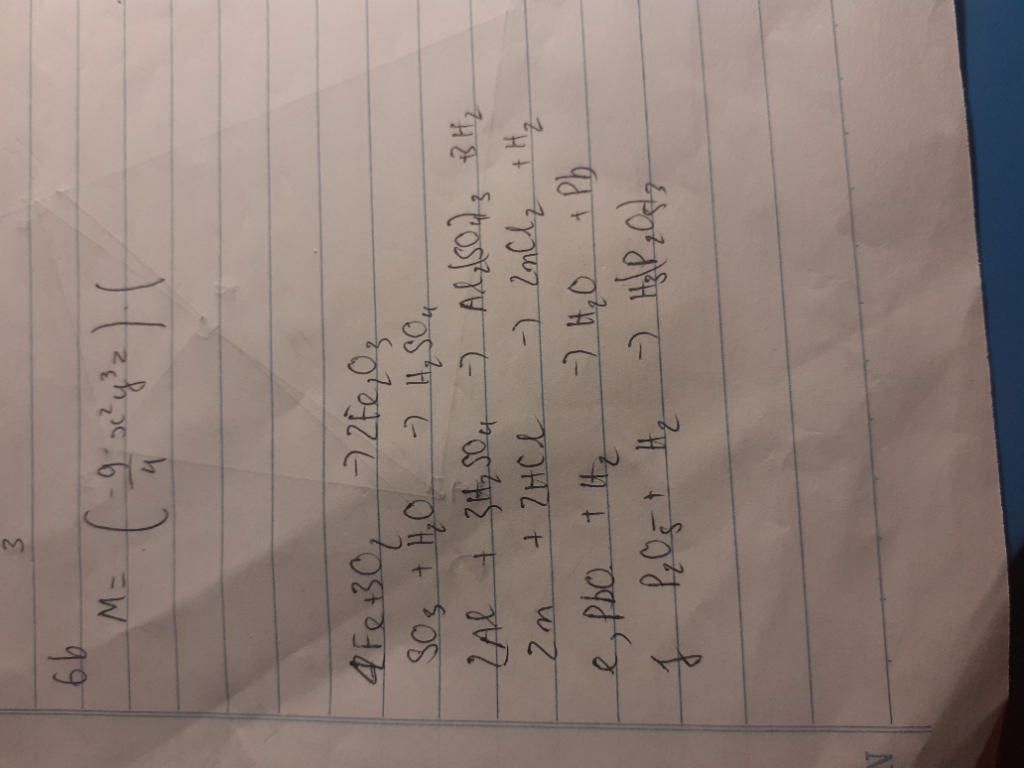 3
6b
M = (-9/4 x²y³z) · (
4Fe + 3O₂ → 2Fe₂O₃
SO₃ + H₂O → H₂SO₄
2Al + 3H₂SO₄ → Al₂(SO₄)₃ 3H₂
Zn + 2HCl → ZnCl₂ + H₂
e, PbO + H₂ → H₂O + Pb
f P₂O₅ + H₂ → H₃(P₂O₅)₃